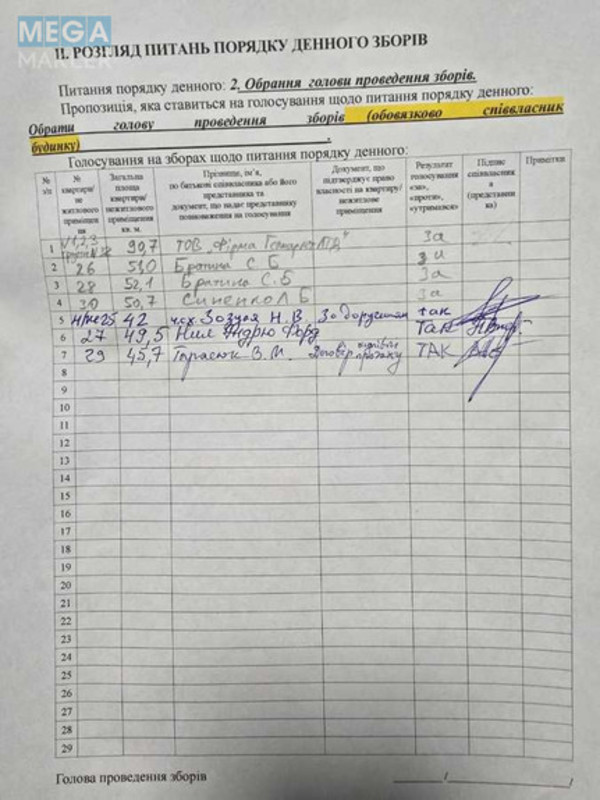 MEGA
МАКЛЕР
II. РОЗГЛЯД ПИТАНЬ ПОРЯДКУ ДЕННОГО ЗБОРІВ
Питання порядку денного: 2. Обрання голови проведення зборів.
Пропозиція, яка ставиться на голосування щодо питання порядку денного:
Обрати голову проведення зборів (обовязково співвласник
будинку)
Голосування на зборах щодо питання порядку денного:
№ з/п
№ квартири/ не житлового приміщен ня
Загальна площа квартири/ нежитлового приміщення кв. м.
Прізвище, ім'я, по батькові співвласника або його представника та документ, що надає представнику повноваження на голосування
Документ, що підтверджує право власності на квартиру/ нежитлове приміщення
Результат голосування «за», «проти», «утримався»
Підпис співвласник а (представни ка)
Примітки
1 №1,2,3 90,7 ТОВ „Фірма ЛТД" За
2 26 51,0 Братина С. Б За
3 28 52,1 Братина С. Б За
4 30 50,7 Синенко Л Б За
5 25 42 Зозуля Н. В. За так
6 27 49,5 Нил Эндрю Форд Так
7 29 45,7 Тарасюк В. М. Договір купівлі продажу ТАК
8
9
10
11
12
13
14
15
16
17
18
19
20
21
22
23
24
25
26
27
28
29
Голова проведення зборів ______/____________________/